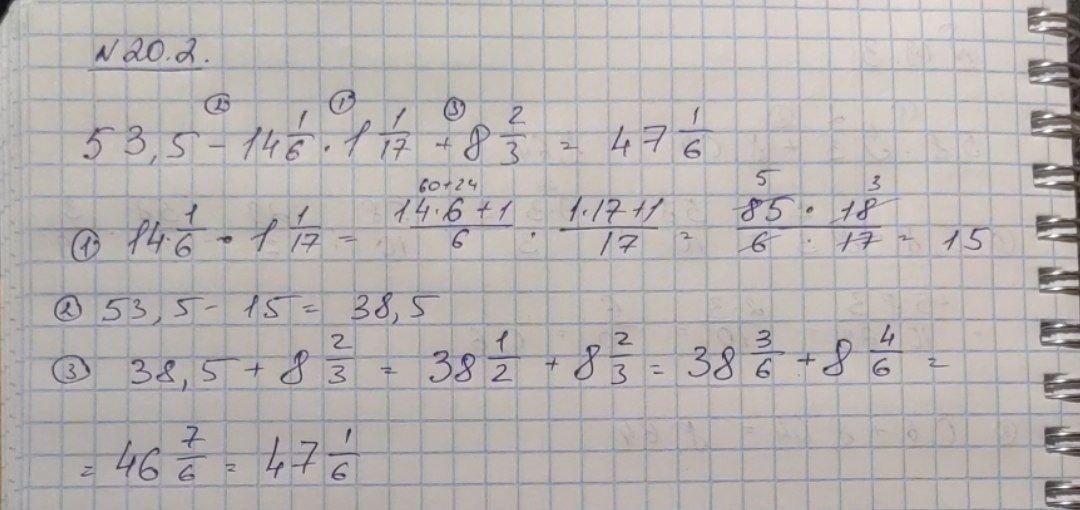 N 20.2.
② ① ③
53,5 - 14 1/6 · 1 1/17 + 8 2/3 = 47 1/6
60+24 5 3
① 14 1/6 · 1 1/17 = (14·6+1)/6 · (1·17+1)/17 = (85 · 18)/(6 · 17) = 15
② 53,5 - 15 = 38,5
③ 38,5 + 8 2/3 = 38 1/2 + 8 2/3 = 38 3/6 + 8 4/6 =
= 46 7/6 = 47 1/6